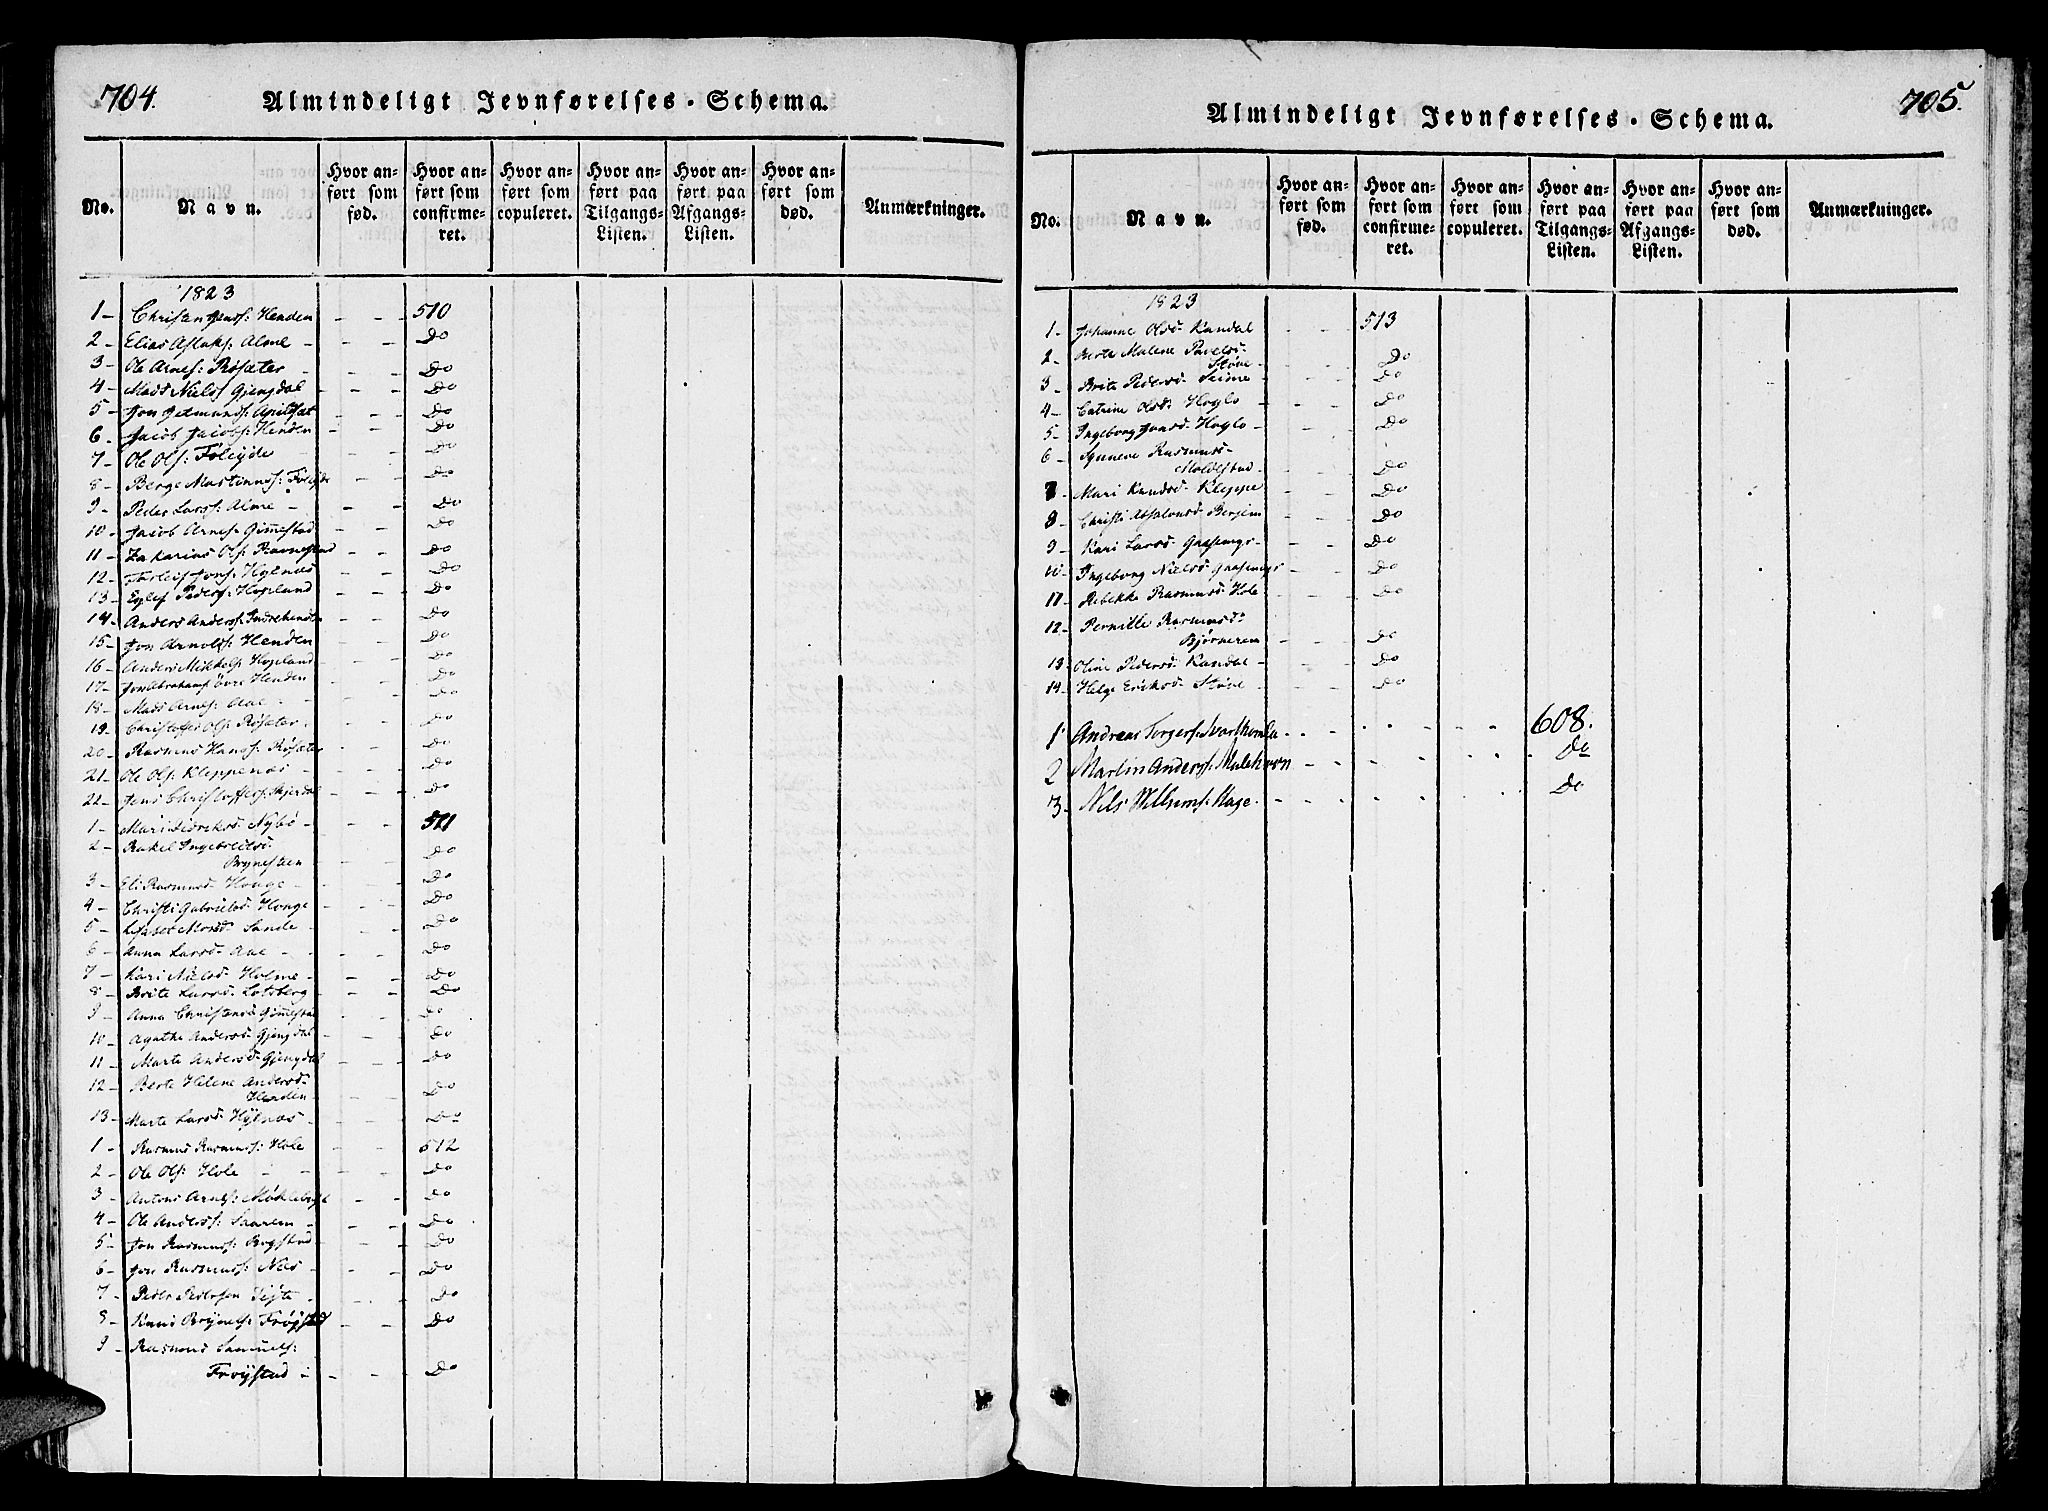 704.
Almindeligt Jevnførelses-Schema.
No.
Navn.
Hvor anført som fød.
Hvor anført som confirmeret.
Hvor anført som copuleret.
Hvor anført paa Tilgangs-Listen.
Hvor anført paa Afgangs-Listen.
Hvor anført som død.
Anmærkninger.
1823
1 - Christen Jenss: Henden - - 510
2 - Elias Aslaks: Alme - - - Do
3 - Ole Arnes: Rösæter - - Do
4 - Mads Niels Gjengdal - - Do
5 - Jon Getmunds: Apildsæt - - Do
6 - Jacob Jacobs: Henden - - Do
7 - Ole Ols: Föleÿde - - Do
8 - Berge Mastinuss: Föleÿde - - Do
9 - Peder Larss: Alme - - - Do
10 - Jacob Arnes: Gim̄estad - - Do
11 - Zakarias Ols: Ravnestad - - Do
12 - Torleif Jons: Hÿenæs - - Do
13 - Eglef Peders: Hopland - - Do
14 - Anders Anderss: Indrehenden - - Do
15 - Jon Arnolds: Henden - - Do
16 - Anders Mikkels: Hopland - - Do
17 - Jon Abrahams övre Henden - - Do
18 - Mads Arnes: Aae - - - Do
19 - Christoffer Ols: Rösæter - - Do
20 - Rasmus Hanss: Rösæter - - Do
21 - Ole Ols: Kleppenæs - - Do
22 - Jens Christoffers: Skjerdal - - Do
1 - Mari Didriksd: Nybö - - - 511
2 - Rakel Ingebretsd:
Brynestein - - Do
3 - Eli Rasmusd: Houge - - - Do
4 - Christi Gabrielsd: Houge - - Do
5 - Monsd: Sande - - - Do
6 - Anna Larsd: Aae - - - Do
7 - Kari Nielsd: Holme - - - Do
8 - Brite Larsd: Lotsberg - - Do
9 - Anna Christensd: Gim̄estad - - Do
10 - Agathe Andersd: Gjengdal - - Do
11 - Marte Andersd: Gjengdal - - Do
12 - Berte Helene Andersd:
Henden - - - Do
13 - Marte Larsd: Hÿenæs - - - Do
1 - Rasmus Rasmuss: Hole - - 512
2 - Ole Ols: Hole - - - Do
3 - Antoni Arnes: Möklebust - - Do
4 - Ole Anderss: Saarem - - - Do
5 - Jon Rasmuss: Bogstad - - - Do
6 - Jon Rasmuss: Nes - - - Do
7 - Peder Pedersen Tiste - - - Do
8 - Knud Brÿnels: Fröÿstad - - Do
9 - Rasmus Samuels:
Fröÿstad - - - Do
705.
Almindeligt Jevnførelses-Schema.
No.
Navn.
Hvor anført som fød.
Hvor anført som confirmeret.
Hvor anført som copuleret.
Hvor anført paa Tilgangs-Listen.
Hvor anført paa Afgangs-Listen.
Hvor anført som død.
Anmærkninger.
1823
1 - Johanne Olsd: Kandal - - 513
2 - Berte Malene Pavelsd:
Støve - - - Do
3 - Brite Pedersd: Seime - - - Do
4 - Catrine Olsd: Hoglo - - - Do
5 - Ingeborg Jonsd: Hoglo - - - Do
6 - Synneve Rasmusd-
Moldestad - - - Do
7 - Mari Knudsd: Kleppe - - Do
8 - Christi Absalonsd: Berjem - - Do
9 - Kari Larsd: - - - Do
10 - Ingeborg Nielsd: - - Do
11 - Rebekke Rasmusd: Hole - - Do
12 - Pernille Rasmusd:
Björnerem - - Do
13 - Oline Pedersd: Kandal - - - Do
14 - Helge Eriksd: Støve - - - Do
1 Andreas Torgers: - - - - - - 608.
2 Martin Anderss: - - - - - Do
3 - Nils Willums: Hage - - - - - - Do